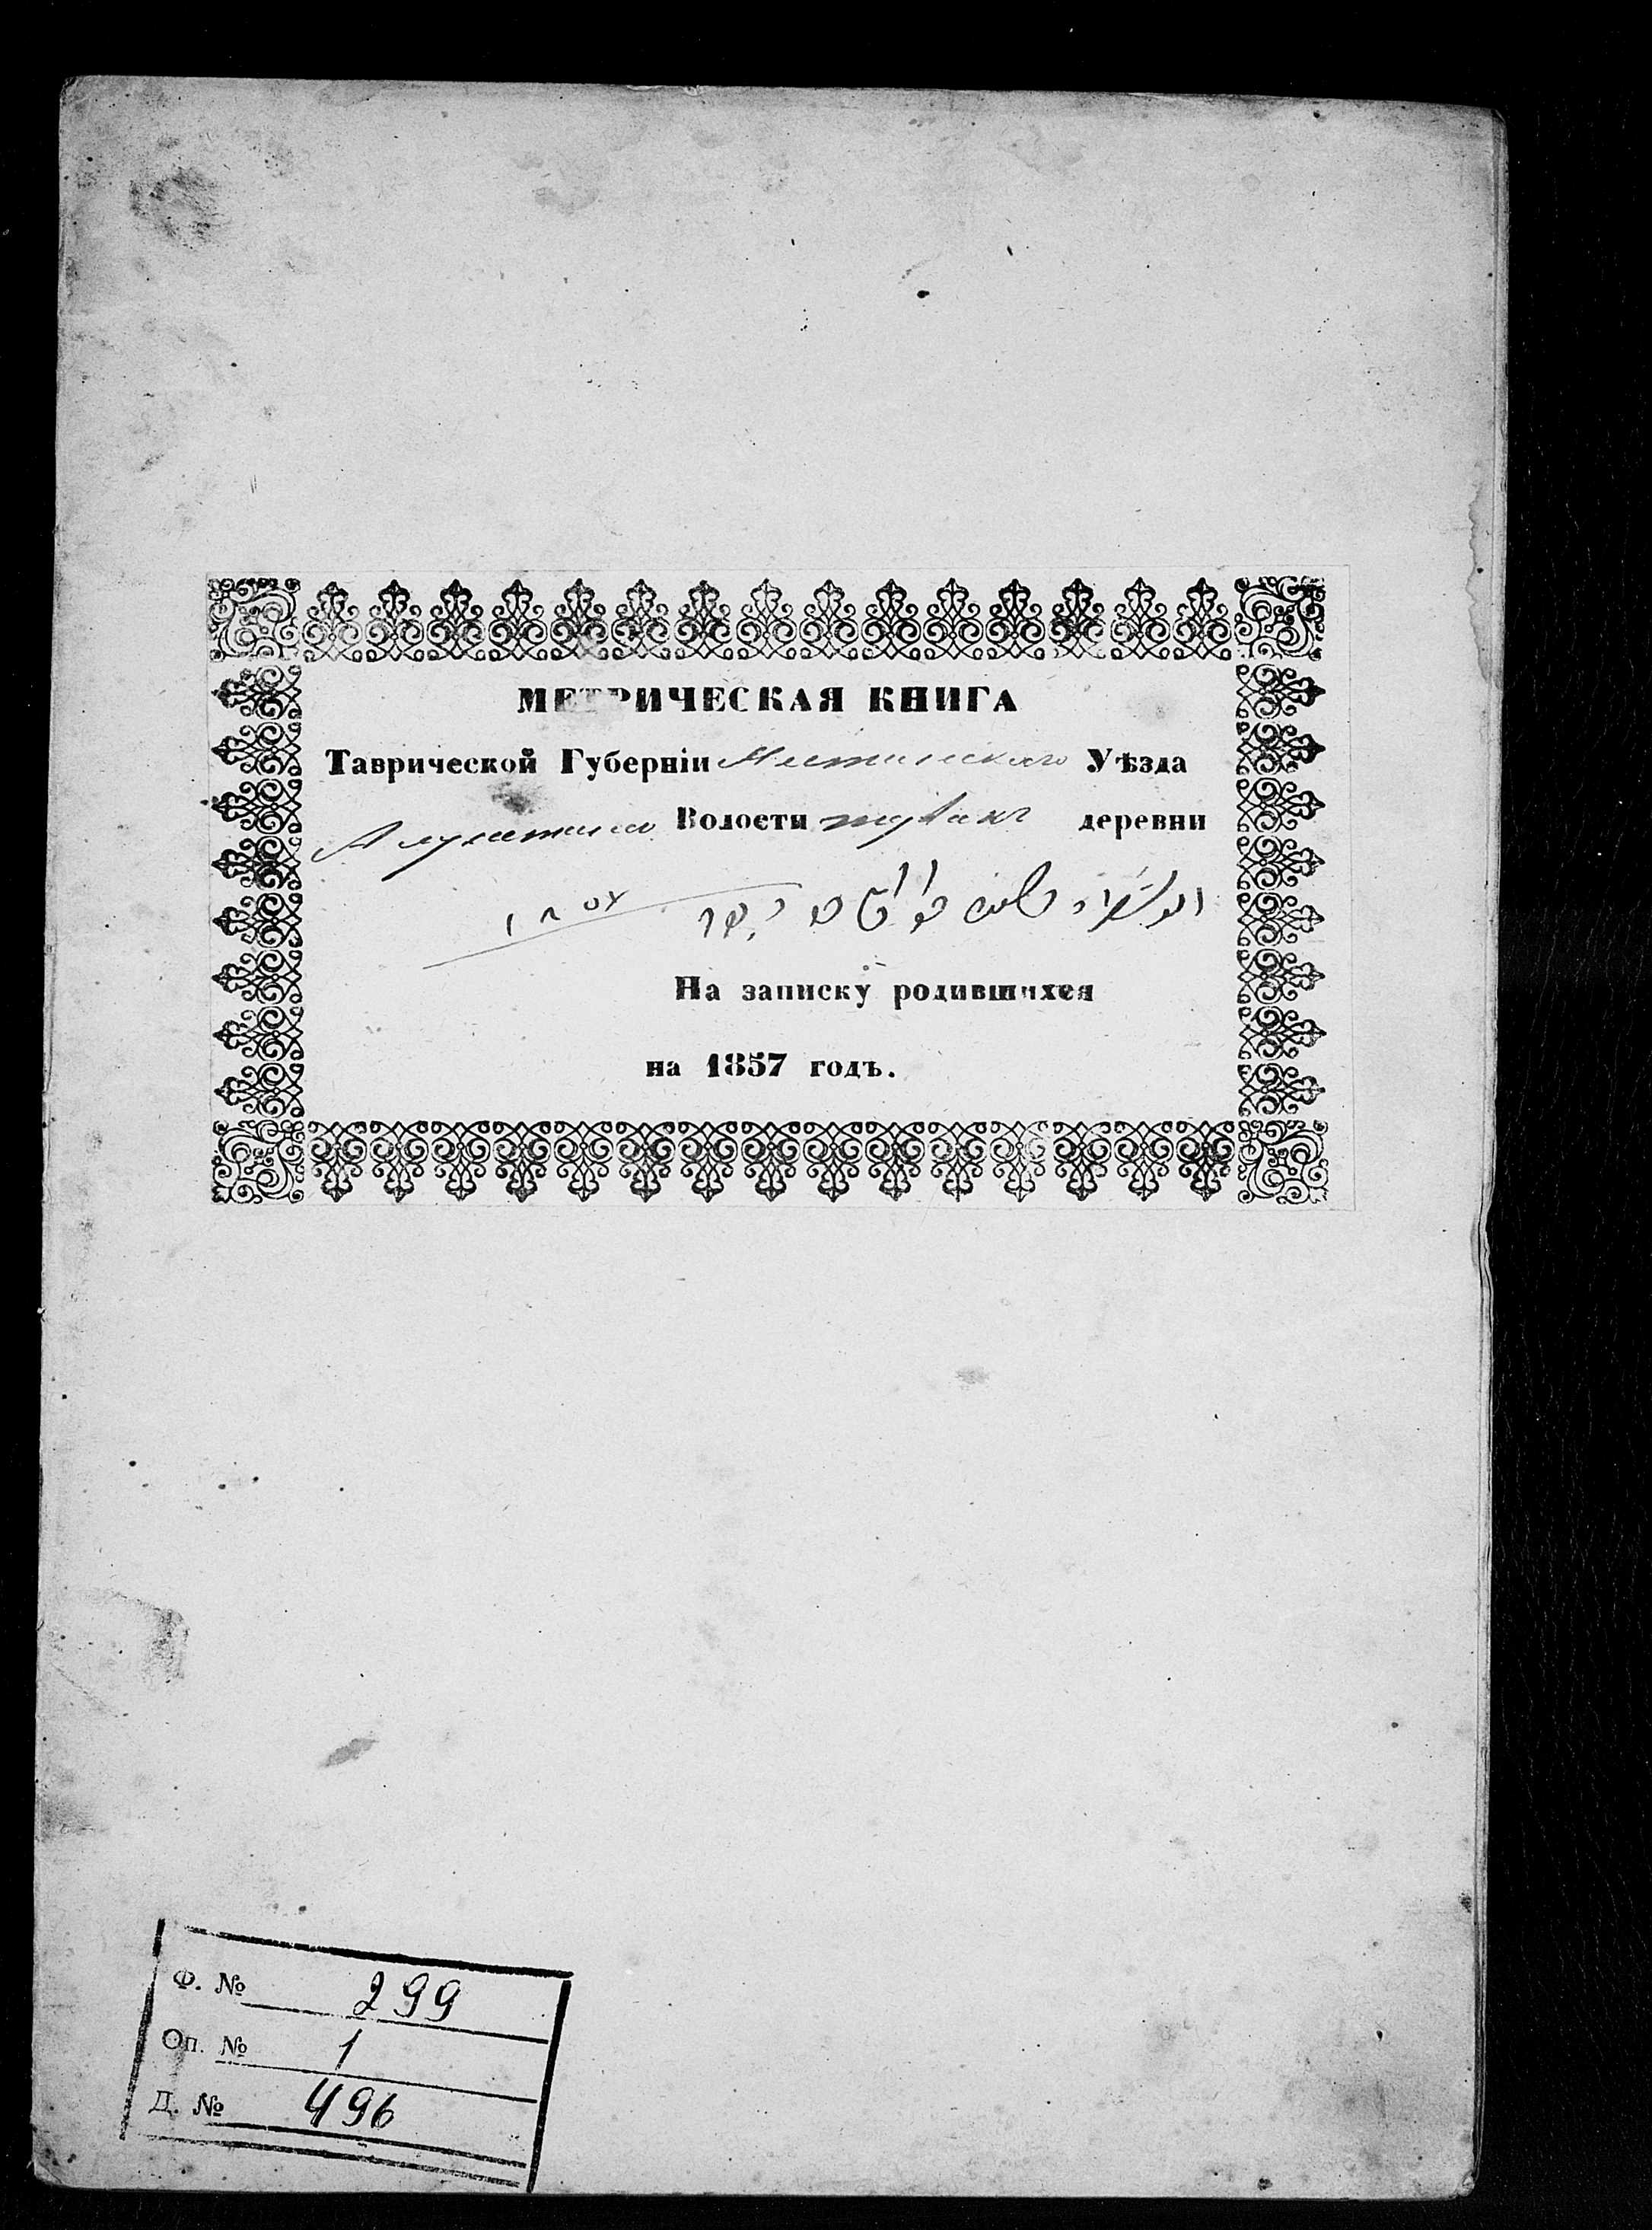 МЕТРИЧЕСКАЯ КНИГА
Таврической Губерніи Ялтинскаго Уѣзда
Алуштин Волости тувакъ деревни
١٨٥٧
На записку родившихся
на 1857 годъ.
Ф. № 299
Оп. № 1
Д. № 496